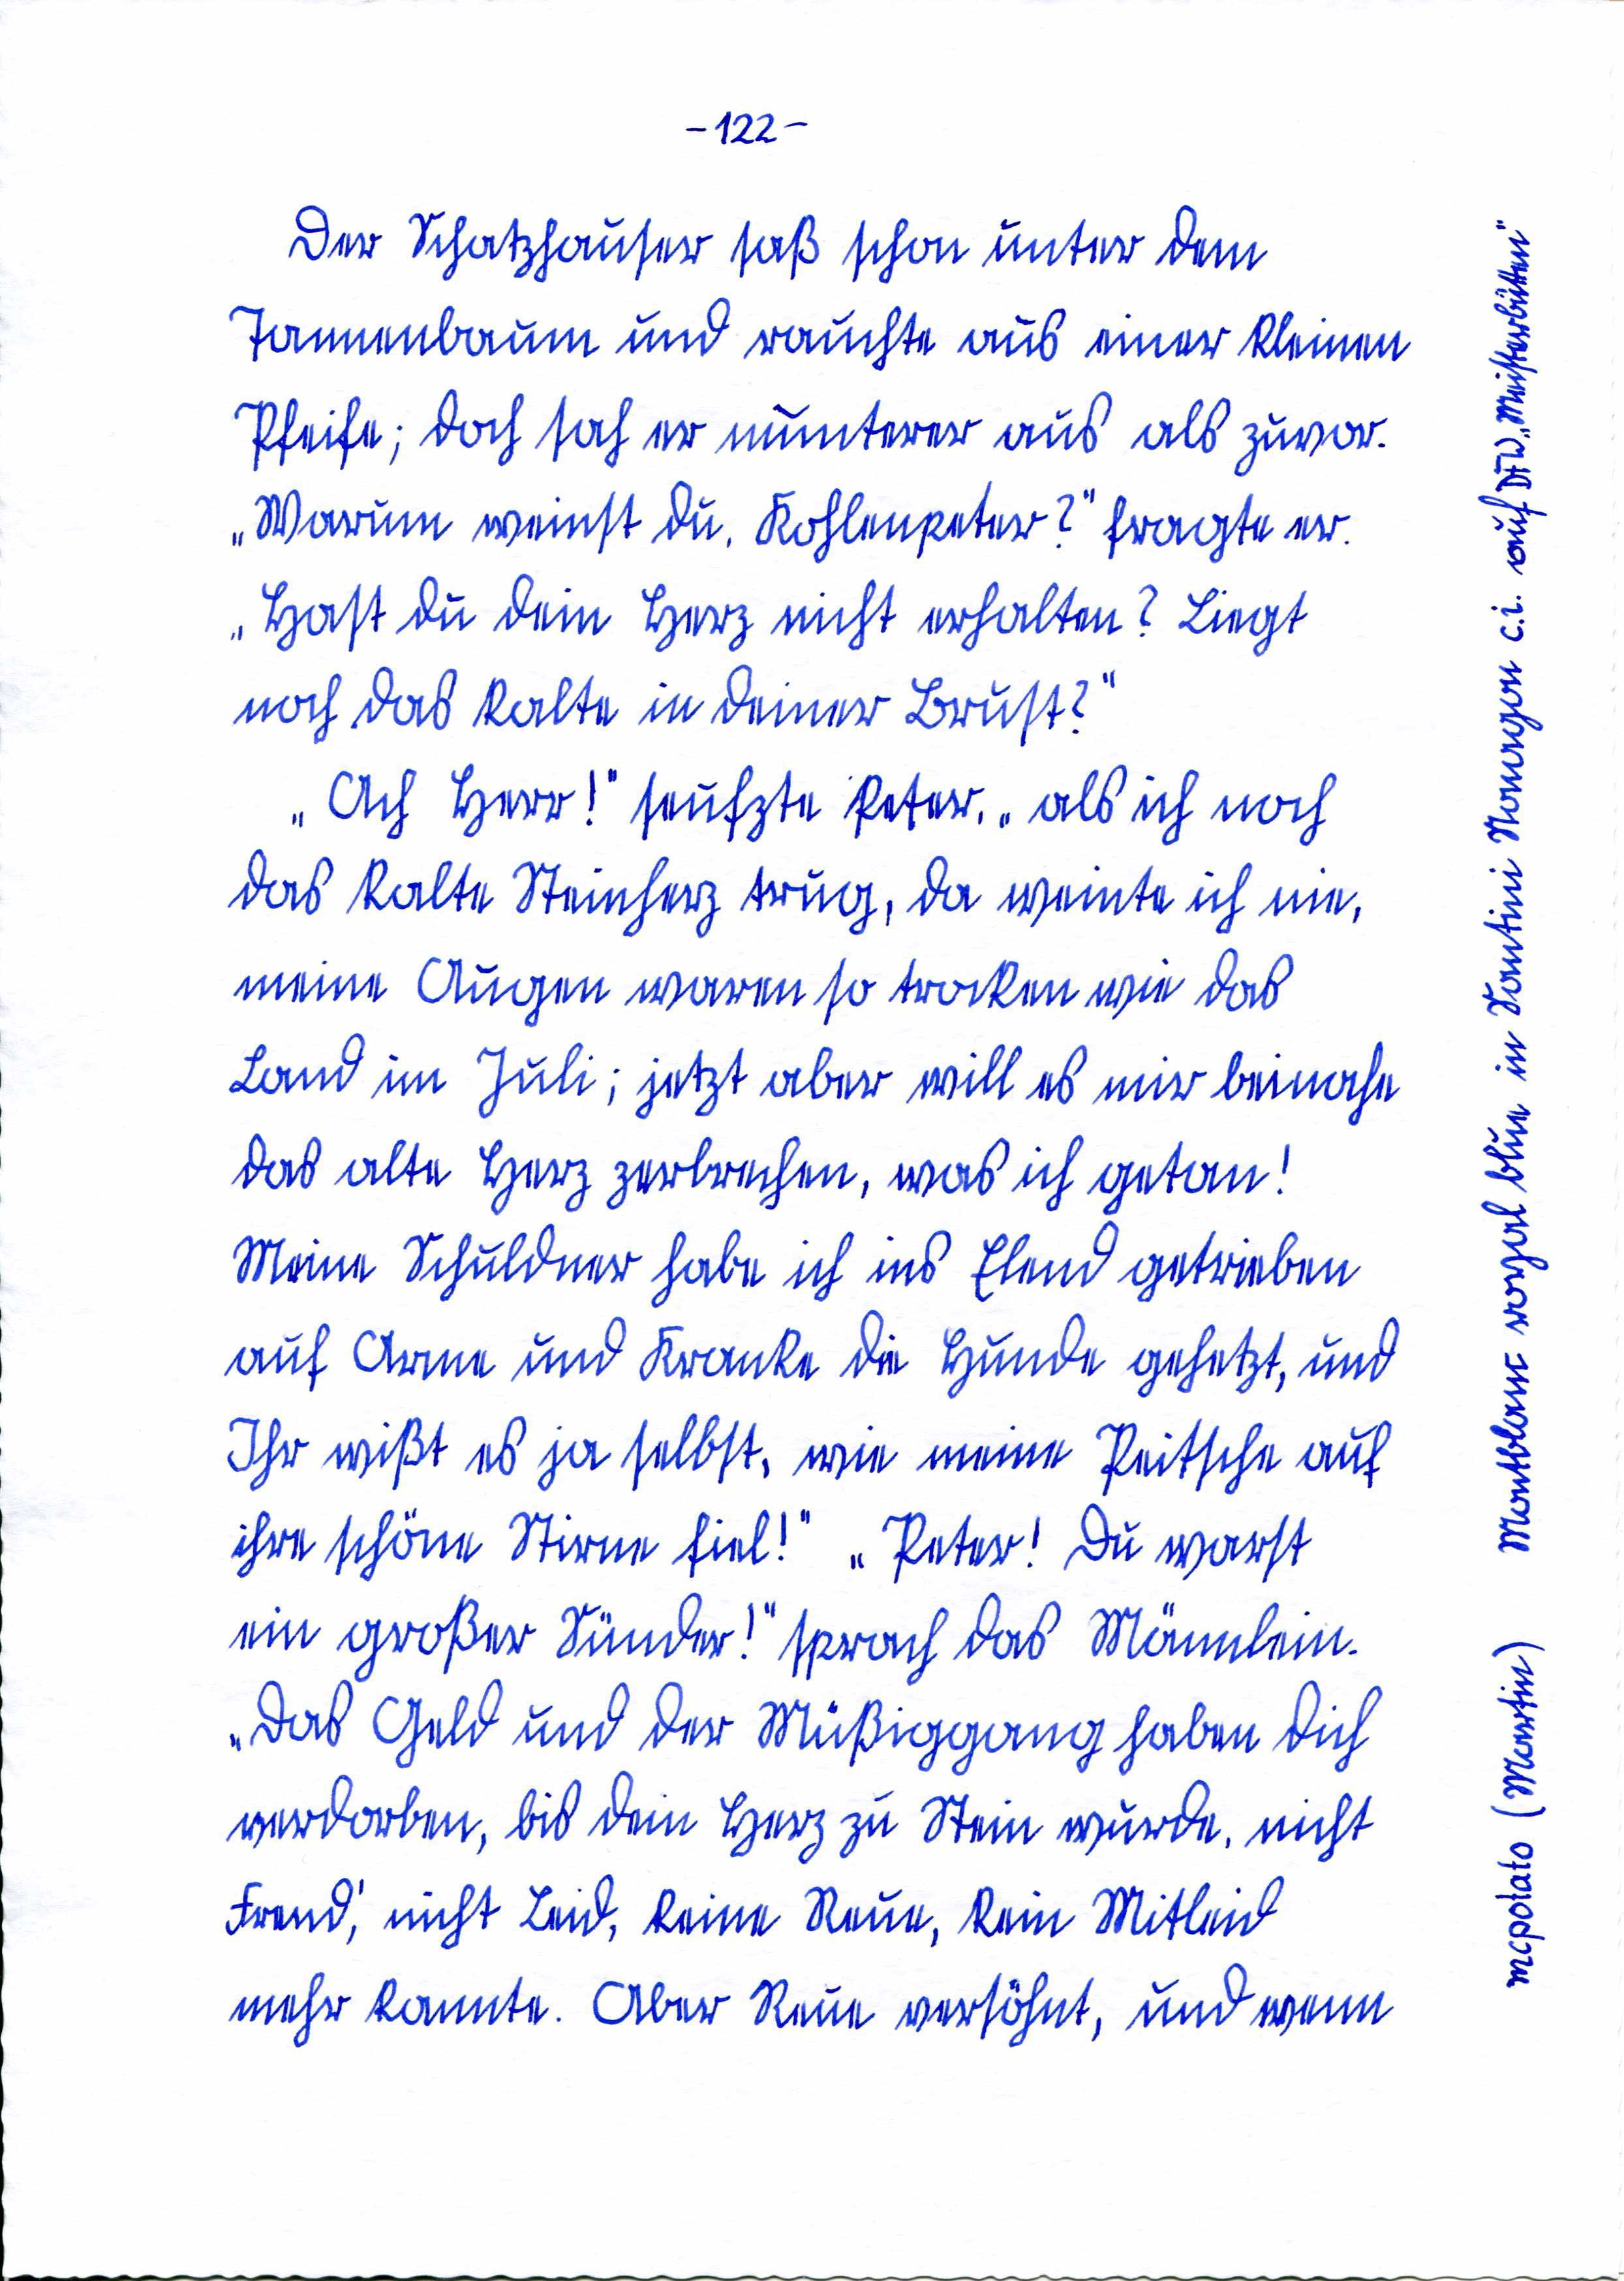 -122-
Der Schatzhauser saß schon unter dem
Tannenbaum und rauchte aus einer kleinen
Pfeife; doch sah er munterer aus als zuvor.
„Warum weinst du, Kohlenpeter?" fragte er.
„Hast du dein Herz nicht erhalten? Liegt
noch das kalte in deiner Brust?"
„Ach Herr!" seufzte Peter, „als ich noch
das kalte Steinherz trug, da weinte ich nie,
meine Augen waren so trocken wie das
Land im Juli; jetzt aber will es mir beinahe
das alte Herz zerbrechen, was ich getan!
Meine Schuldner habe ich ins Elend getrieben
auf Arme und Kranke die Hunde gehetzt, und
Ihr wißt es ja selbst, wie meine Peitsche auf
ihre schöne Stirne fiel!" „Peter! Du warst
ein großer Sünder!" sprach das Männlein.
„Das Geld und der Müßiggang haben dich
verdorben, bis dein Herz zu Stein wurde, nicht
Freud', nicht Leid, keine Reue, kein Mitleid
mehr kannte. Aber Reue versöhnt, und wenn
mcpotato (Martin) Montblanc royal blue in Santini Nonagon c.i. auf DFW „Meisterbütten"